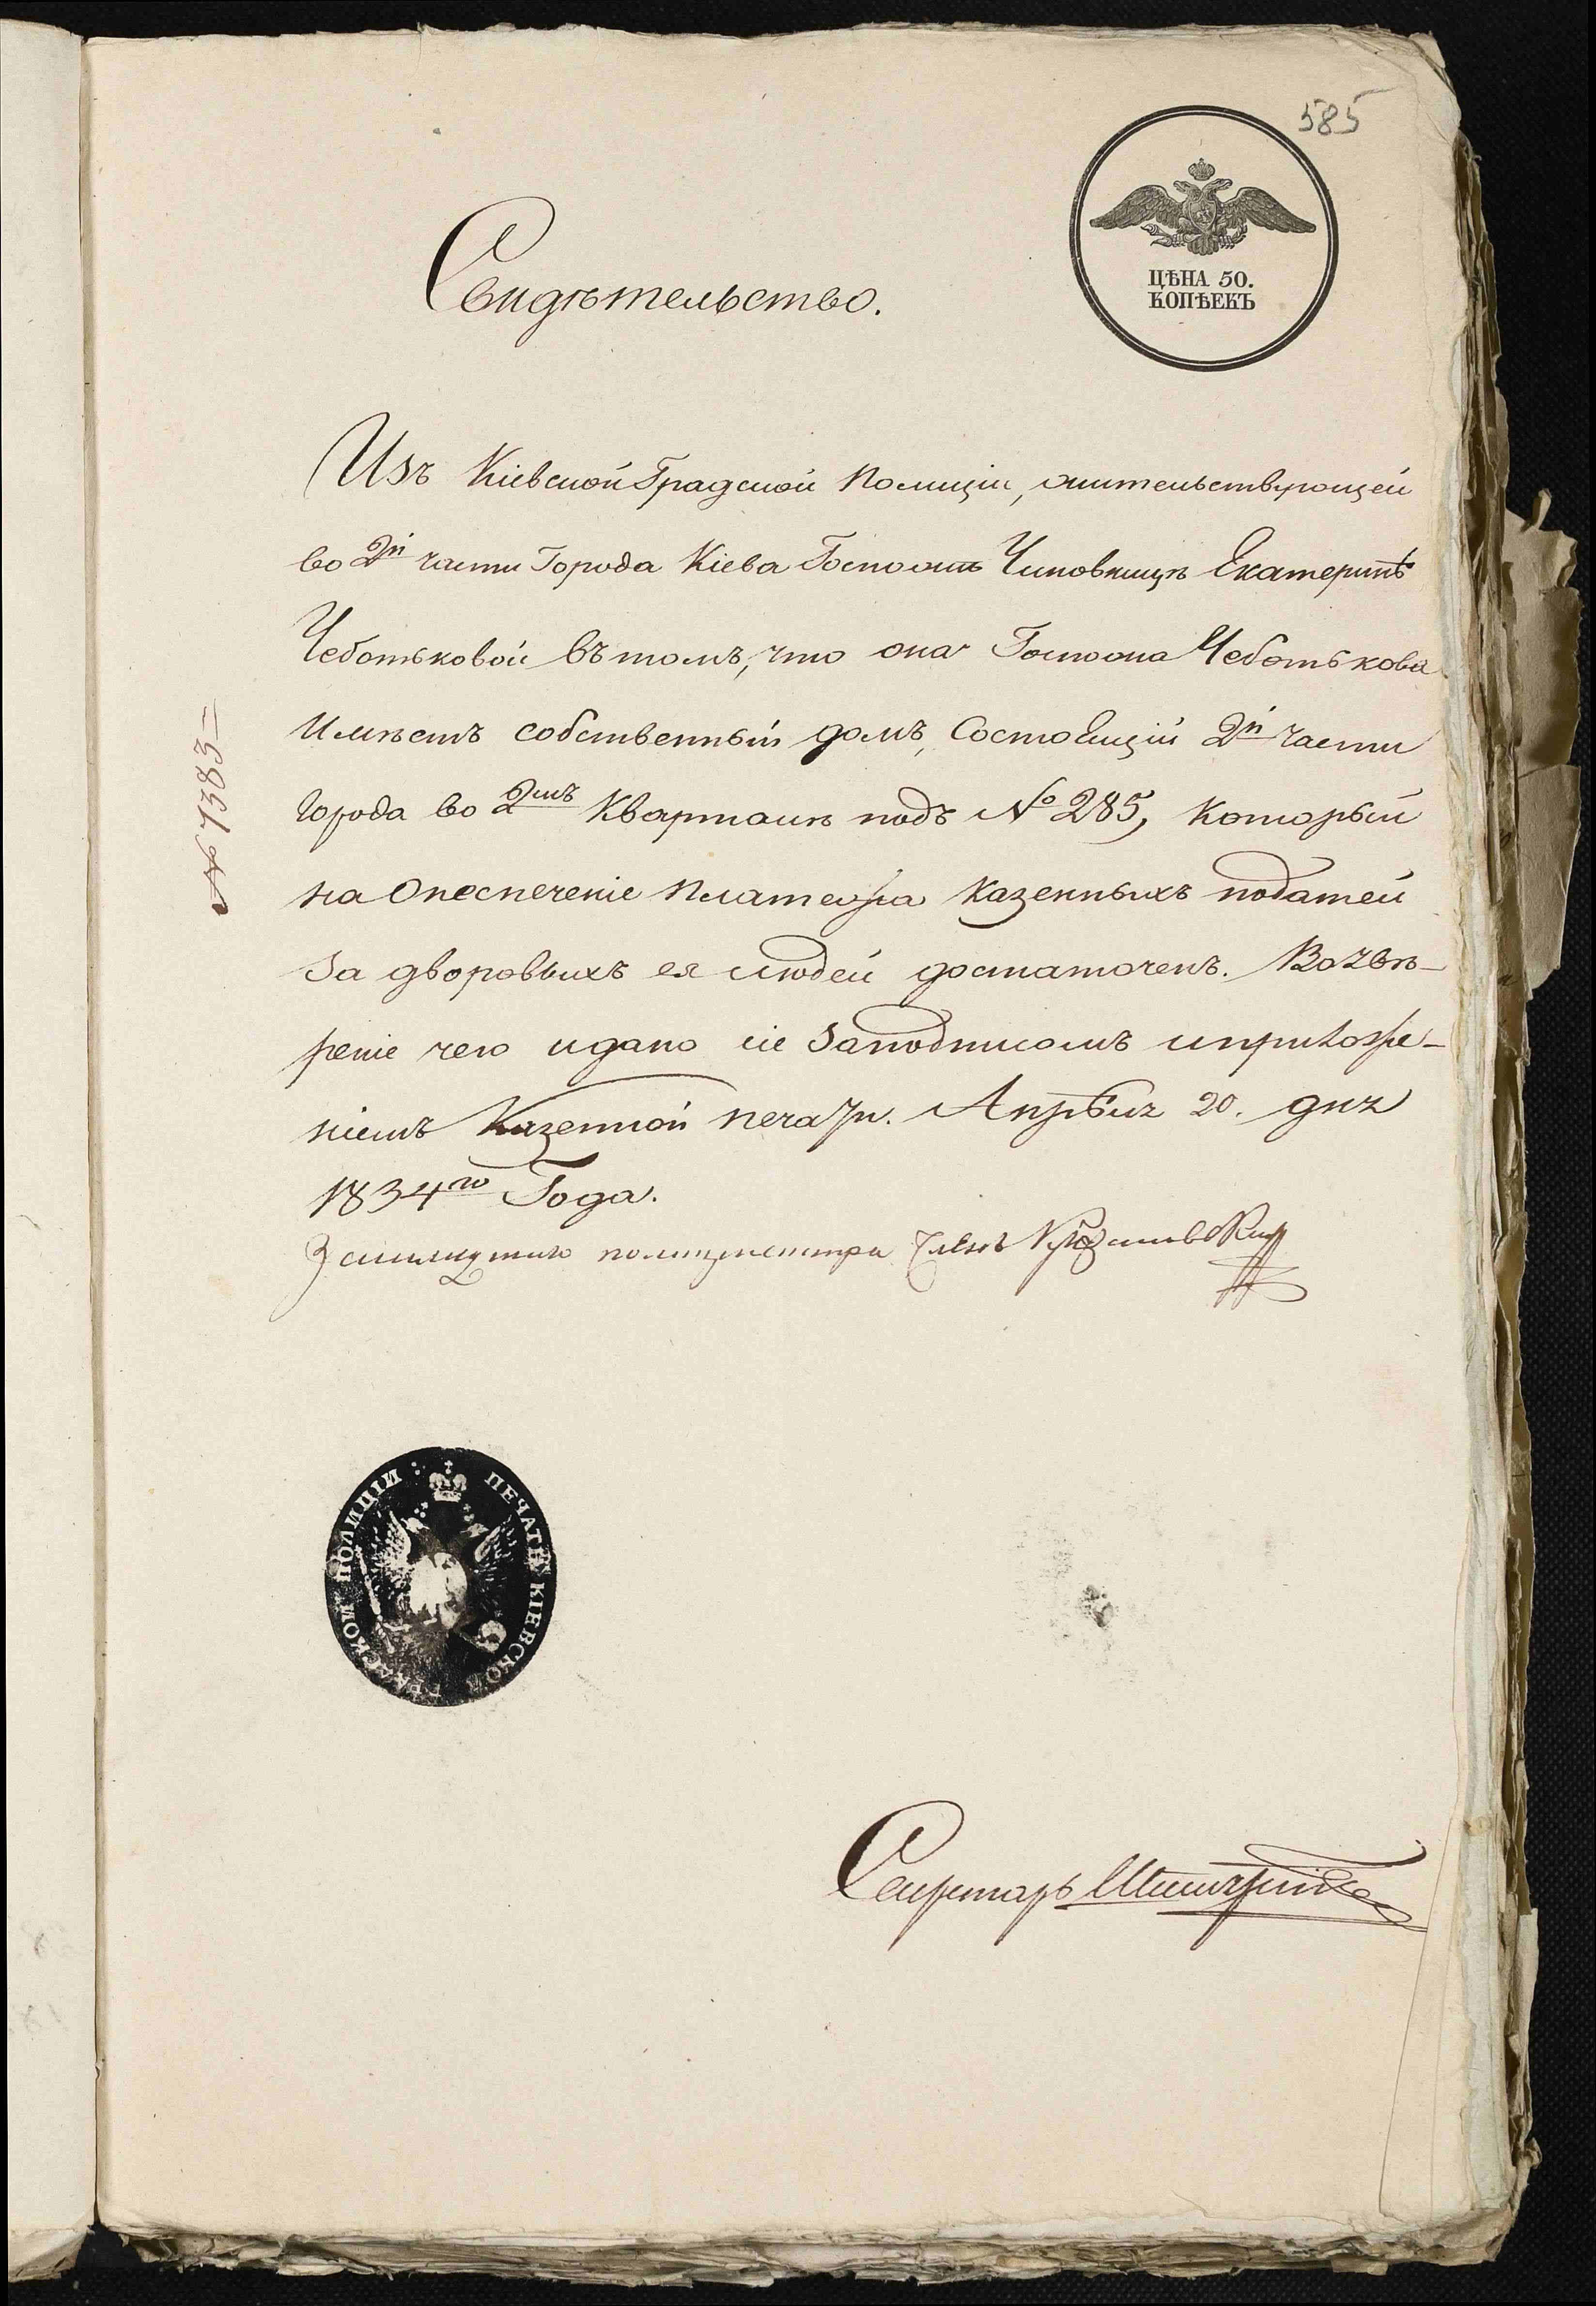 585
ЦѢНА 50.
КОПѢЕКЪ
Свидѣтельство.
Изъ Кіевской Градской Полиціи, жительствующей
во 2й части Города Кіева Госпожѣ Чиновницѣ Екатеринѣ
Чеботьковой въ томъ, что она Госпожа Чеботькова
имѣетъ собственный домъ, состоящій 2й части
города во 2мъ Кварталѣ подъ № 285, который
на опеспеченіе платежа казенныхъ податей
за дворовыхъ ея людей достаточенъ. Во увѣ-
реніе чего и дано сіе за подписомъ и приложе-
ніемъ Казенной печати. Апрѣля 20. дня
1834го Года.
За полицмейстра Членъ
№ 7383
ПЕЧАТЬ КІЕВСКОЙ ГРАДСКОЙ ПОЛИЦІИ
Секретарь